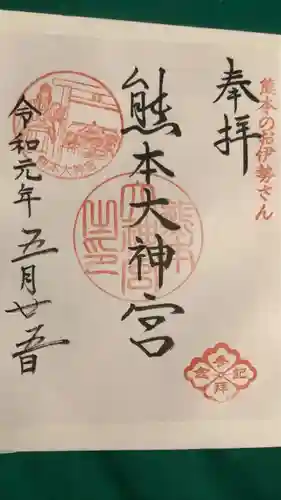 熊本のお伊勢さん
奉拝
熊本大神宮
熊本大神宮之印
熊本大神宮
令和元年五月廿五日
参拝記念